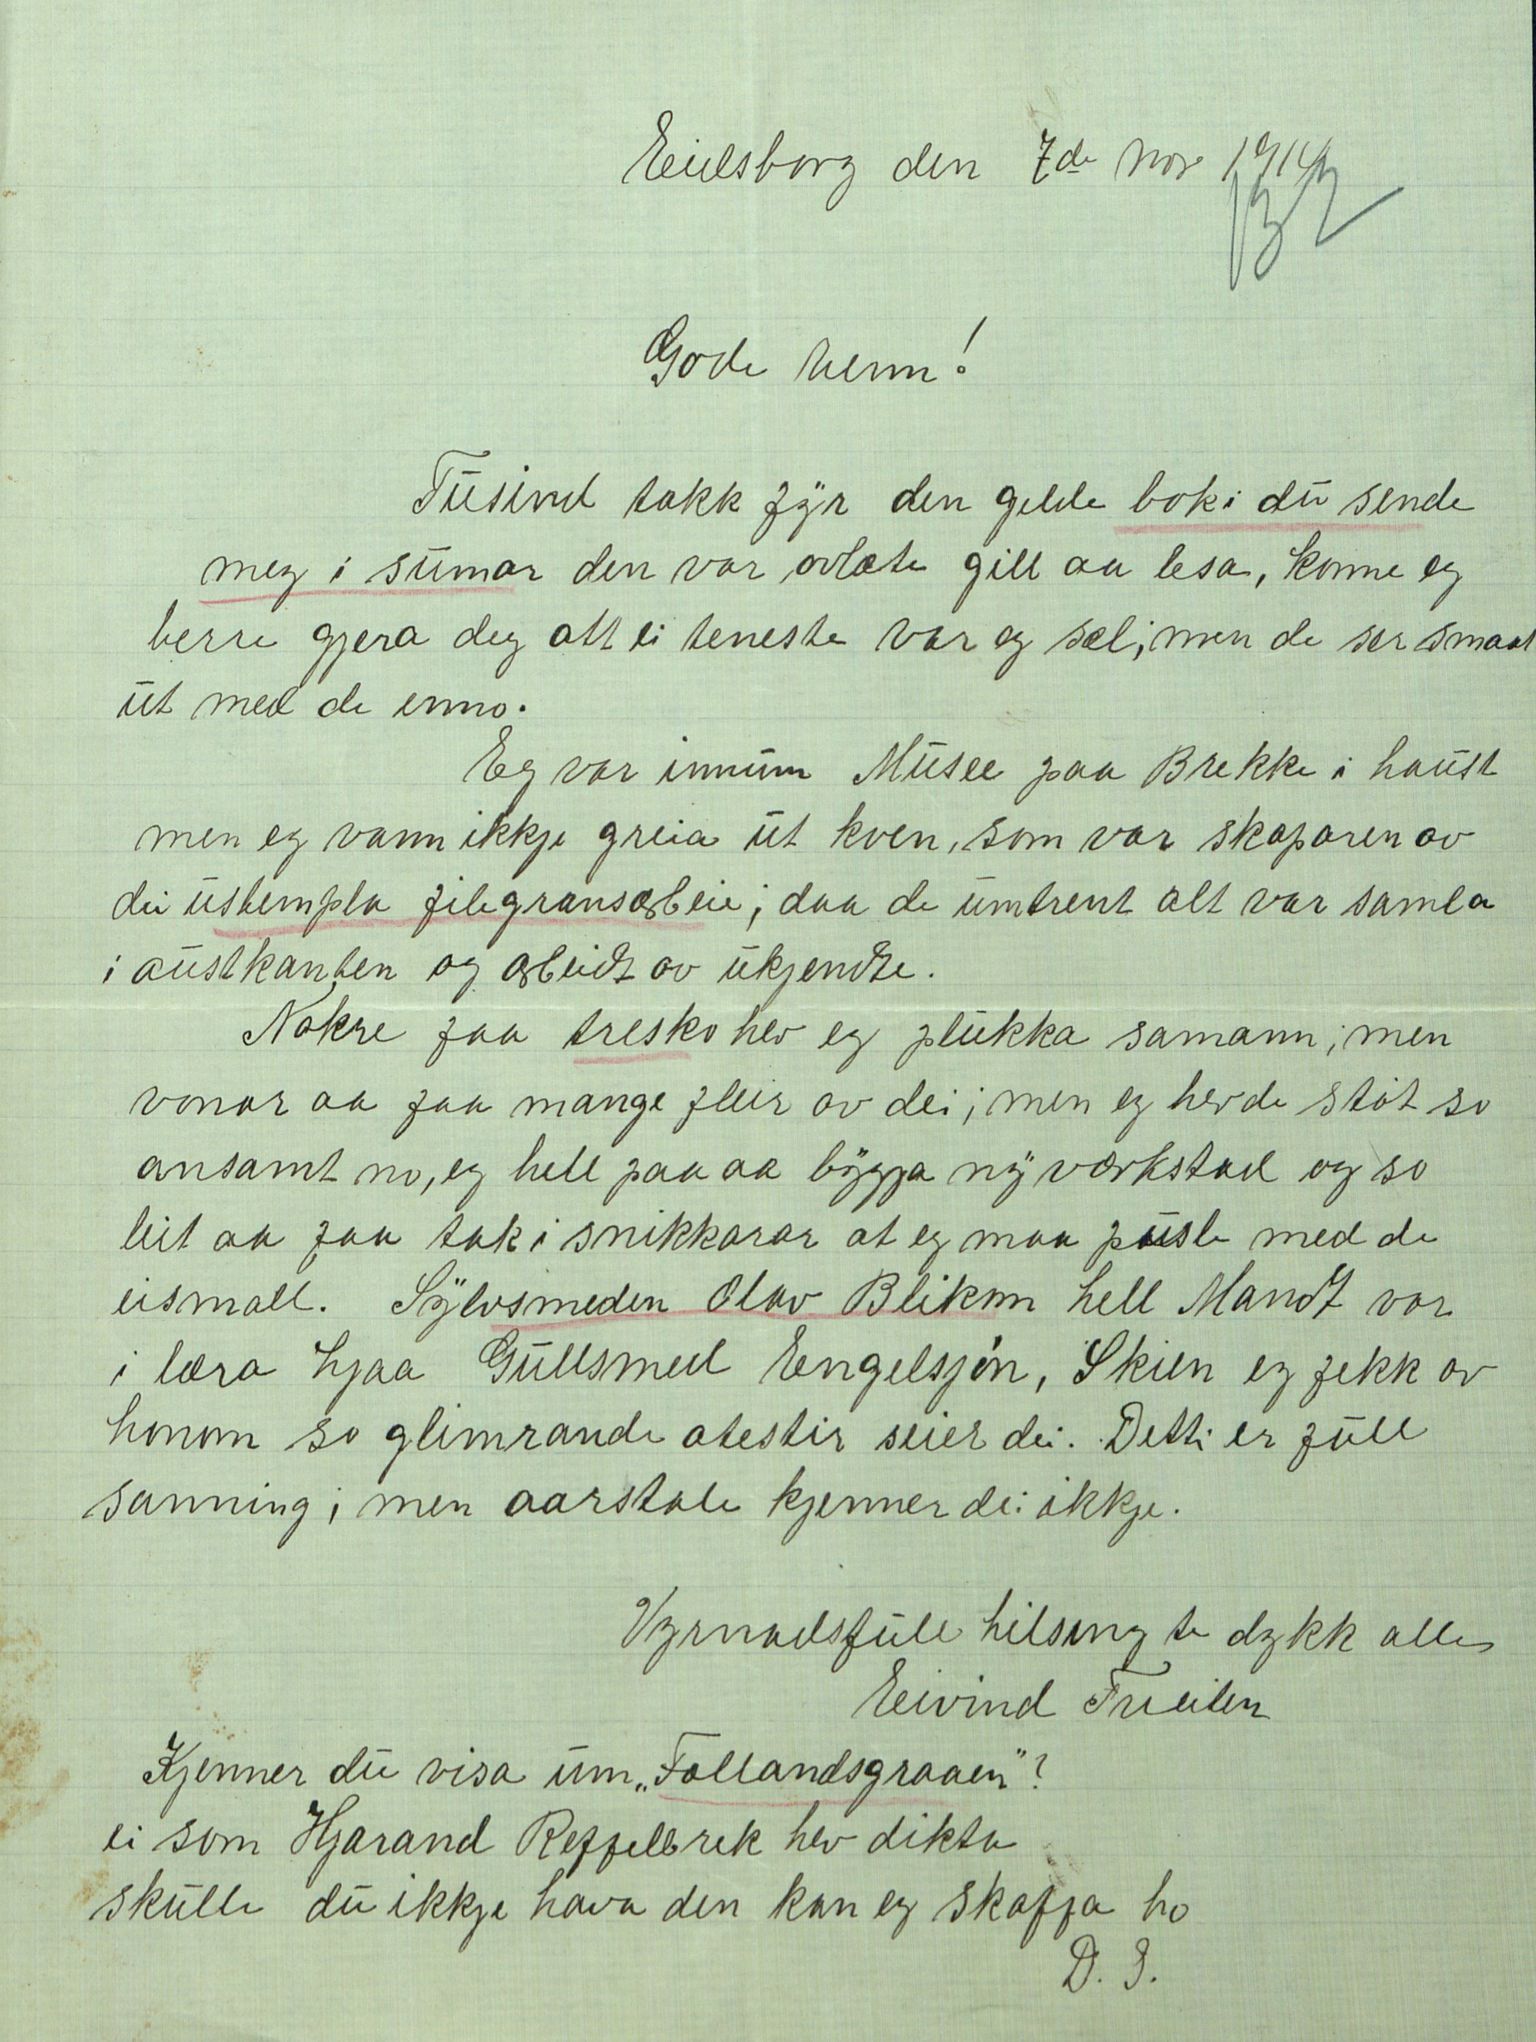 Eidsborg den 7de Nov 1914
Gode venn!
Tusind takk fyr den gilde boki du sende
meg i sumar den var ovlæte gill aa lesa, konne eg
berre gjera deg att ei teneste var eg sæl; men de ser smaat
ut med de enno.
Eg var innum Musee paa Brekke i haust
men eg vann ikkje greia ut kven, som var skaparen av
dei ustempla filegransarbeie; daa de umtrent alt var samla
i austkanten og arbeidt av ukjendte.
Nokre faa tresko hev eg plukka samann; men
vonar aa faa mange fleir av dei; men eg hevde støt so
ansamt no, eg hell paa aa bygja ny værkstad og so
leit aa faa tak i snikkarar at eg maa pusle med de
eismall. Sylvsmeden Olav Blikom hell Mandt var
i læra hjaa Gullsmed Engelsjøn, Skien eg fekk av
honom so glimrande atestir seier dei. Detti er full
sanning; men aarstale kjenner dei ikkje.
Vyrnadsfull hilsing te dykk alle
Eivind Traeiten
Kjenner du visa um „Follandsgraaen"?
ei som Hjarand Reffelbrek hev dikta
skulle du ikkje hava den kan eg skaffa ho
D. S.